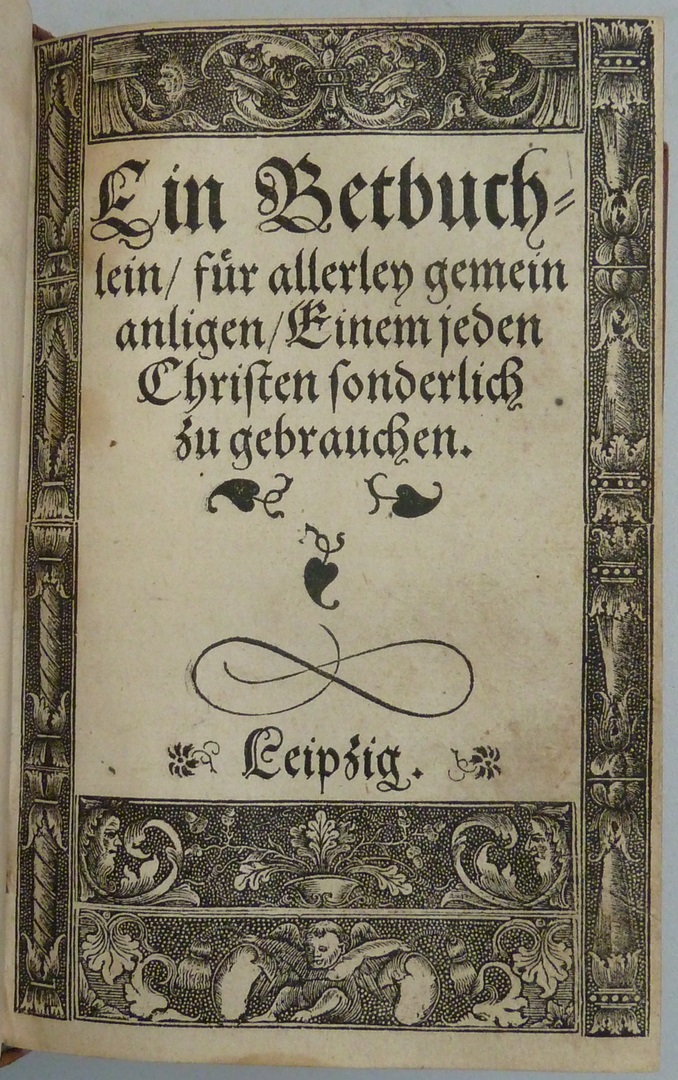 Ein Betbuch⸗
lein/ fuͤr allerley gemein
anligen/ Einem jeden
Chriſten ſonderlich
zu gebrauchen.
Leipzig.